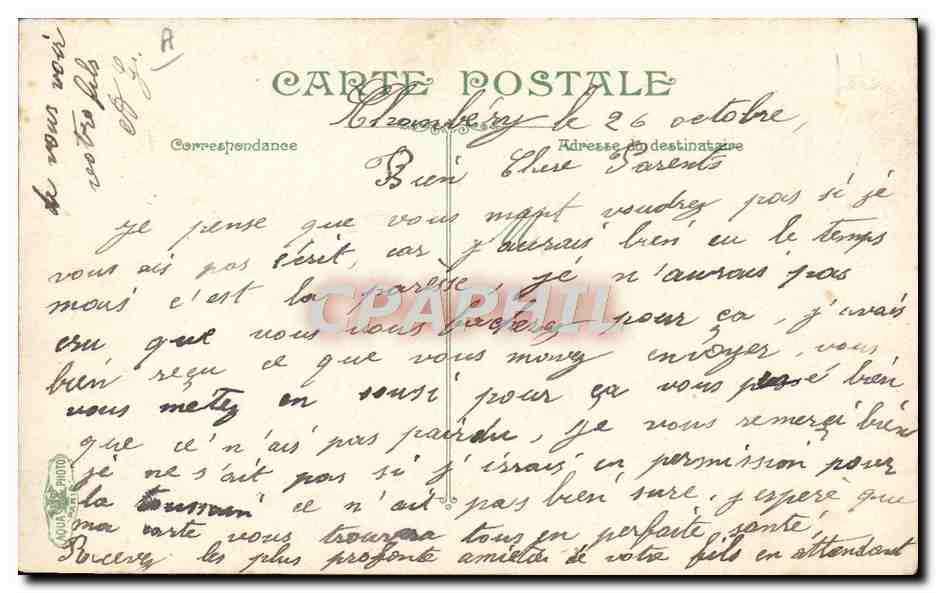 CARTE POSTALE
Chambéry le 26 octobre,
Correspondance
Adresse du destinataire
Bien Chere Parents
je pense que vous mant voudrez pas si je
vous ais pas écrit, car j'aurais bien eu le temps
mais c'est la parèsse, jé n'aurais pas
cru que vous vous facherez pour ça, j'avais
bien reçu ce que vous mavez envoyer, vous
vous metez en sousi pour ça vous pensé bien
que ce n'ais pas pairdu, Je vous remerçi bien
jé ne s'ait pas si j'irrais en permission pour
la toussain ce n'ait pas bien sure, j'esperé que
ma carte vous trouvera tous en parfaite santé,
Recevez les plus profonte amitiés de votre fils en attendant
de vous voir
votre fils
A
AQUA PHOTO
PARIS
CPAPHIL